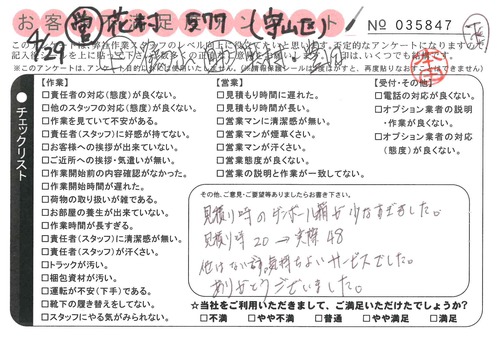 № 035847
4/29
花村
(守山区)
チェックリスト
【作業】
□責任者の対応(態度)が良くない。
□他のスタッフの対応(態度)が良くない。
□作業を見ていて不安がある。
□責任者(スタッフ)に好感が持てない。
□お客様への挨拶が出来ていない。
□ご近所への挨拶・気遣いが無い。
□作業開始前の内容確認がなかった。
□作業開始時間が遅れた。
□荷物の取り扱いが雑である。
□お部屋の養生が出来ていない。
□作業時間が長すぎる。
□責任者(スタッフ)に清潔感が無い。
□責任者(スタッフ)が汗くさい。
□トラックが汚い。
□梱包資材が汚い。
□運転が不安(下手)である。
□靴下の履き替えをしてない。
□スタッフにやる気がみられない。
【営業】
□見積もり時間に遅れた。
□見積もり時間が長い。
□営業マンに清潔感が無い。
□営業マンが煙草くさい。
□営業マンが汗くさい。
□営業態度が良くない。
□営業の説明と作業が一致してない。
【受付・その他】
□電話の対応が良くない。
□オプション業者の説明
・作業が良くない。
□オプション業者の対応
(態度)が良くない。
その他、ご意見・ご要望等ありましたらお書き下さい。
見積り時のダンボール箱が少なすぎました。
見積り時 20 → 実際 48
ありがとうございました。
☆当社をご利用いただきまして、ご満足いただけたでしょうか?
□不満 □やや不満 □普通 □やや満足 □満足